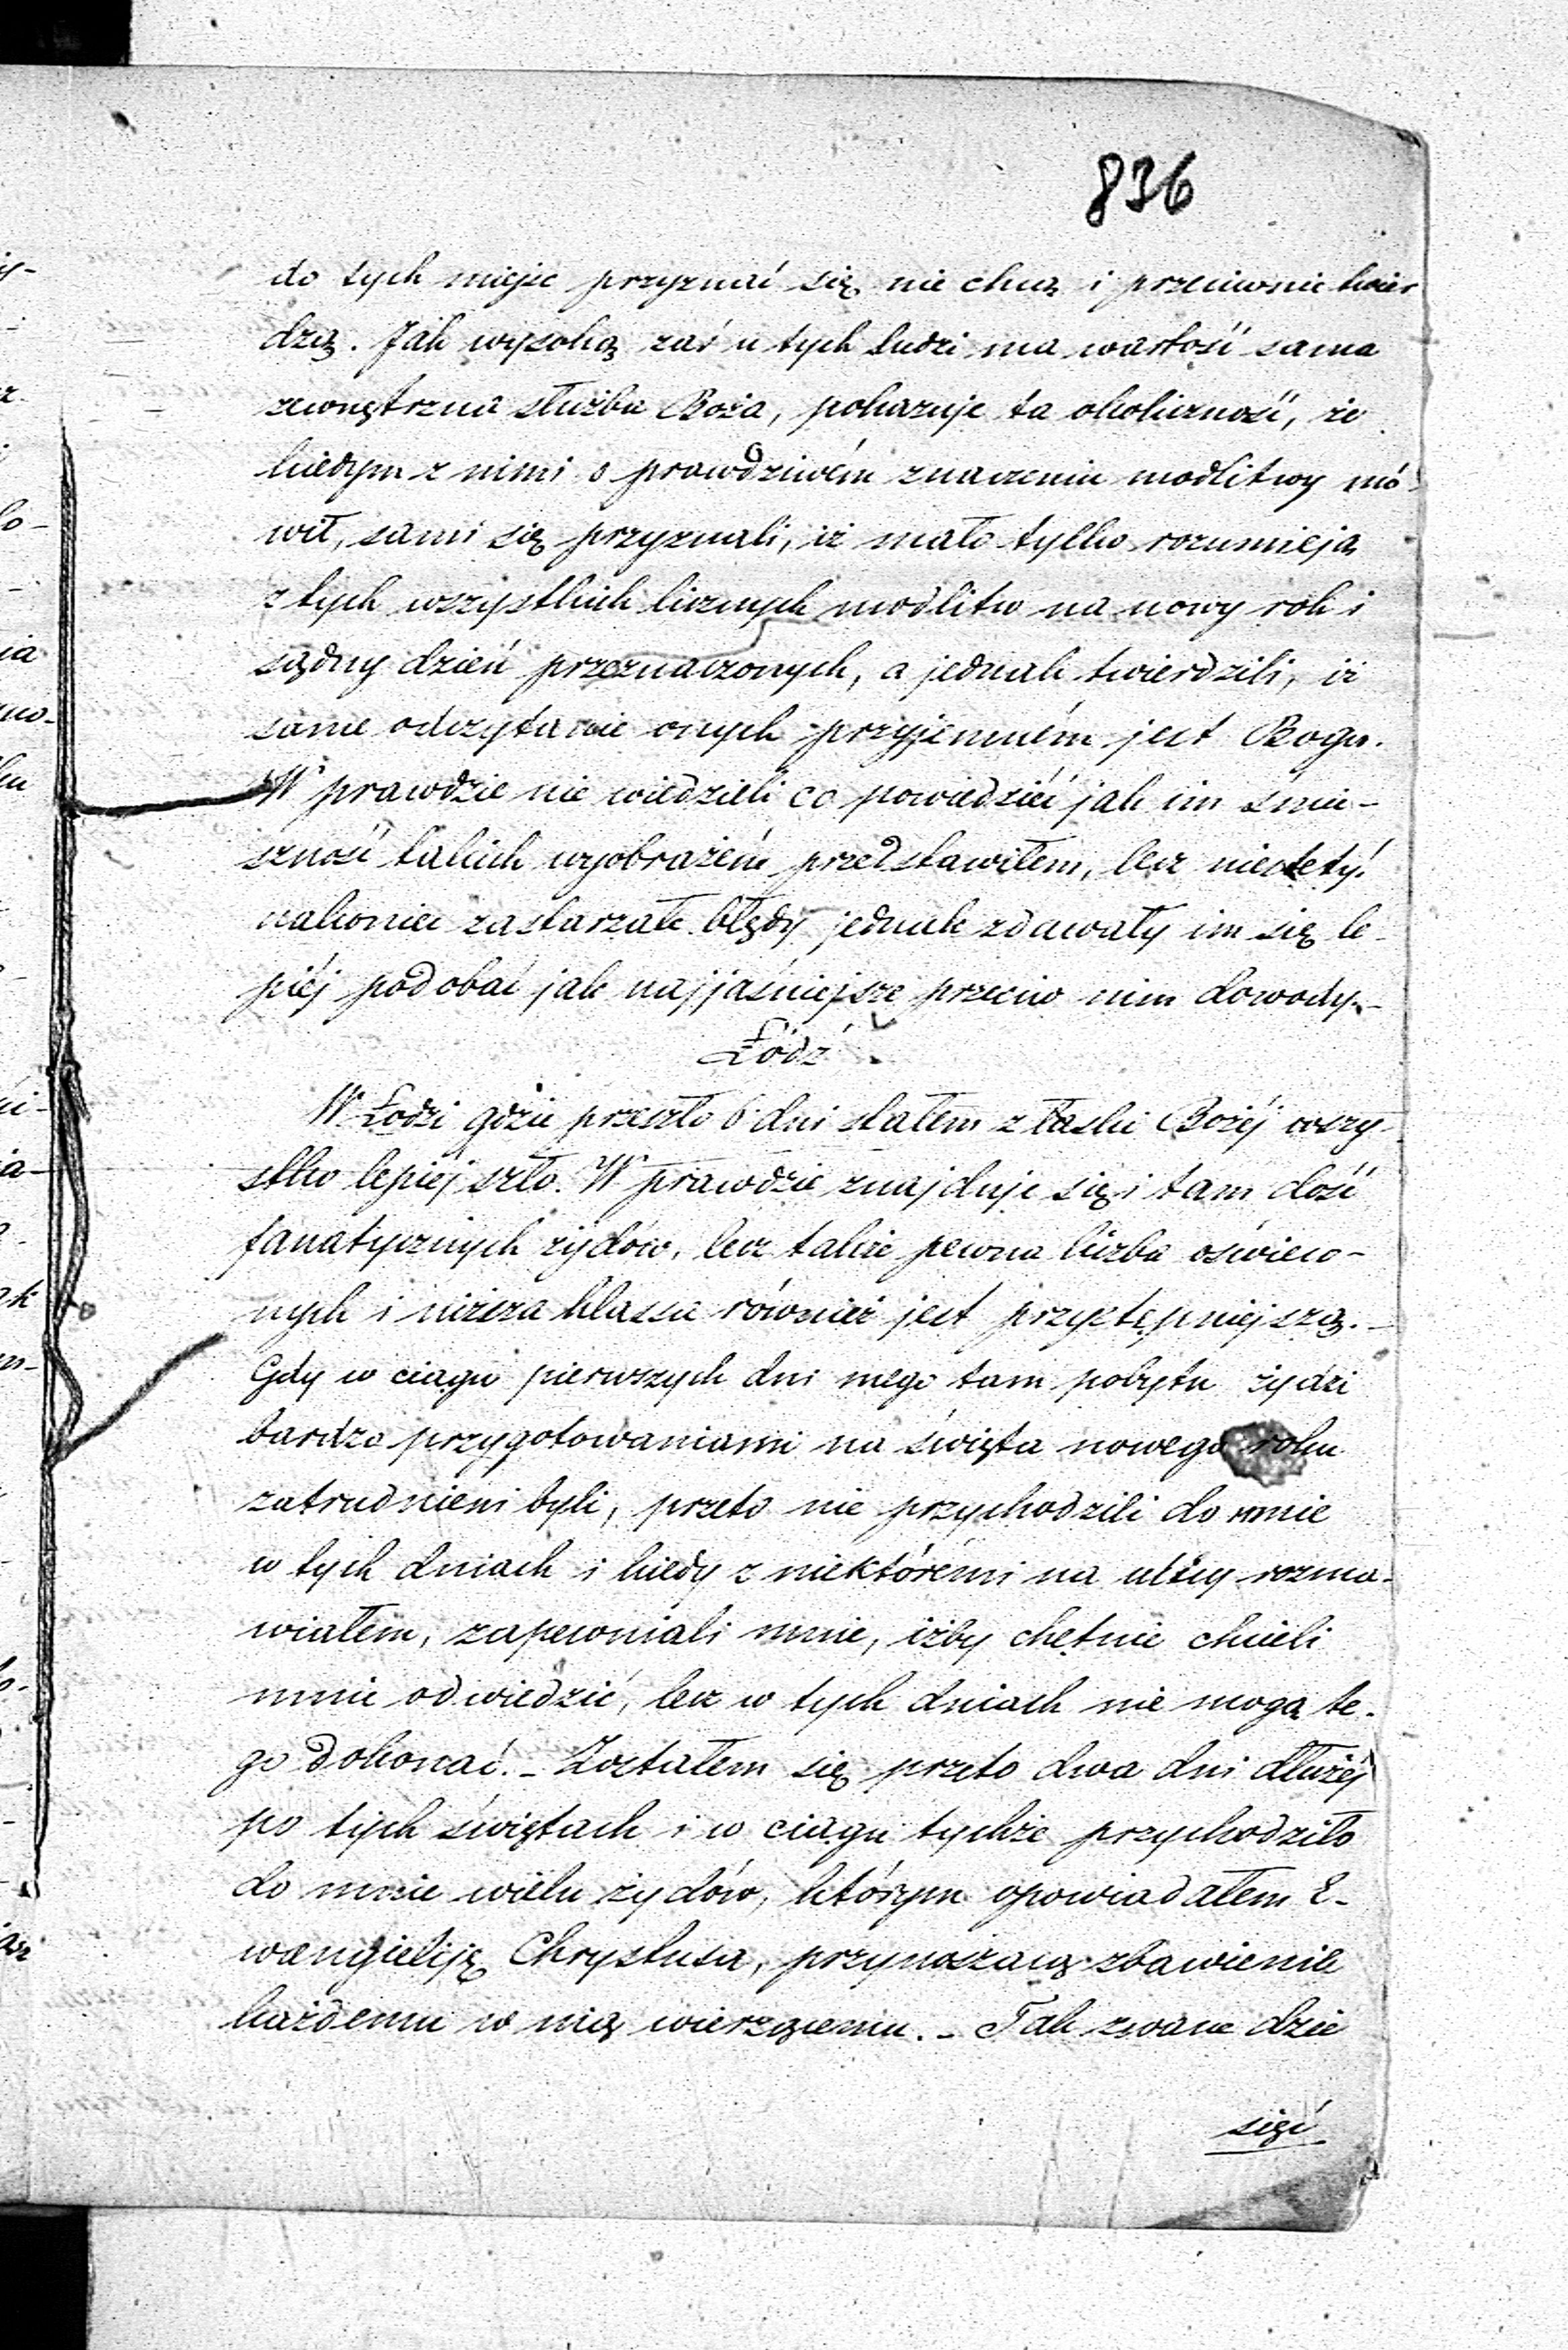 836
do tych miejsc przyznać się nie chcą i przeciwnie twier
dzą. Jak wysoką zaś u tych ludzi ma wartość sama
zewnętrzna służba Boża, pokazuje ta okoliczność, że
kiedym z nimi o prawdziwém znaczeniu modlitwy mó-
wił, sami się przyznali, iż mało tylko rozumieją
z tych wszystkich licznych modlitw na nowy rok i
sądny dzień przeznaczonych, a jednak twierdzili, iż
same odczytanie onych przyjemném jest Bogu.
W prawdzie nie wiedzieli co powiedzieć jak im śmie-
szność takich wyobrażeń przedstawiłem, lecz niestety!
nakoniec zastarzałe błędy jednak zdawały im się le-
piéj podobać jak najjaśniejsze przeciw nim dowody.-
Łódź.
W Łodzi gdzie przeszło 6 dni stałem z łaski Bożéj wszy-
stko lepiéj szło. W prawdzie znajduje się i tam dość
fanatycznych żydów, lecz także pewna liczba oświeco-
nych i niższa klassa również jest przystępniejszą.-
Gdy w ciągu pierwszych dni mego tam pobytu żydzi
bardzo przygotowaniami na święta nowego roku
zatrudnieni byli, przeto nie przychodzili do mnie
w tych dniach i kiedy z niektóremi na ulicy rozma-
wiałem, zapewniali mnie, iżby chętnie chcieli
mnie odwiedzić, lecz w tych dniach nie mogą te-
go dokonać.- Zostałem się przeto dwa dni dłużéj
po tych świętach i w ciągu tychże przychodziło
do mnie wielu żydów, którym opowiadałem E-
wangieliję Chrystusa, przynoszącą zbawienie
każdemu w nią wierzącemu.- Tak zwane dzie
sięć